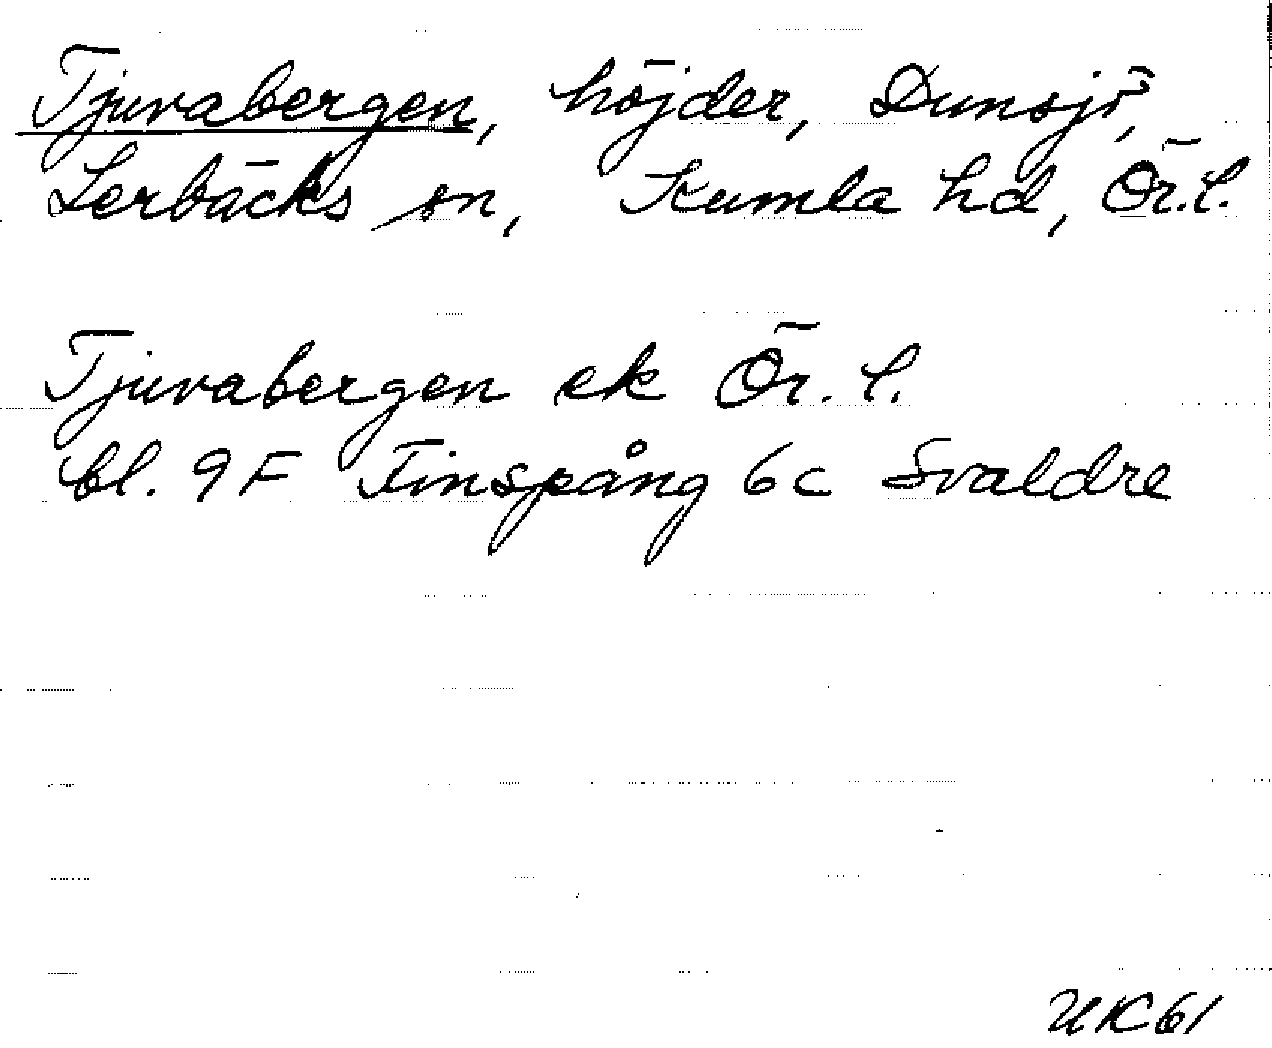 Tjuvabergen, höjder, Dunsjö,
Lerbäcks sn, Kumla hd, Ör.l.
Tjuvabergen ek Ör. l.
bl. 9F Finspång 6c Svaldre
UK61